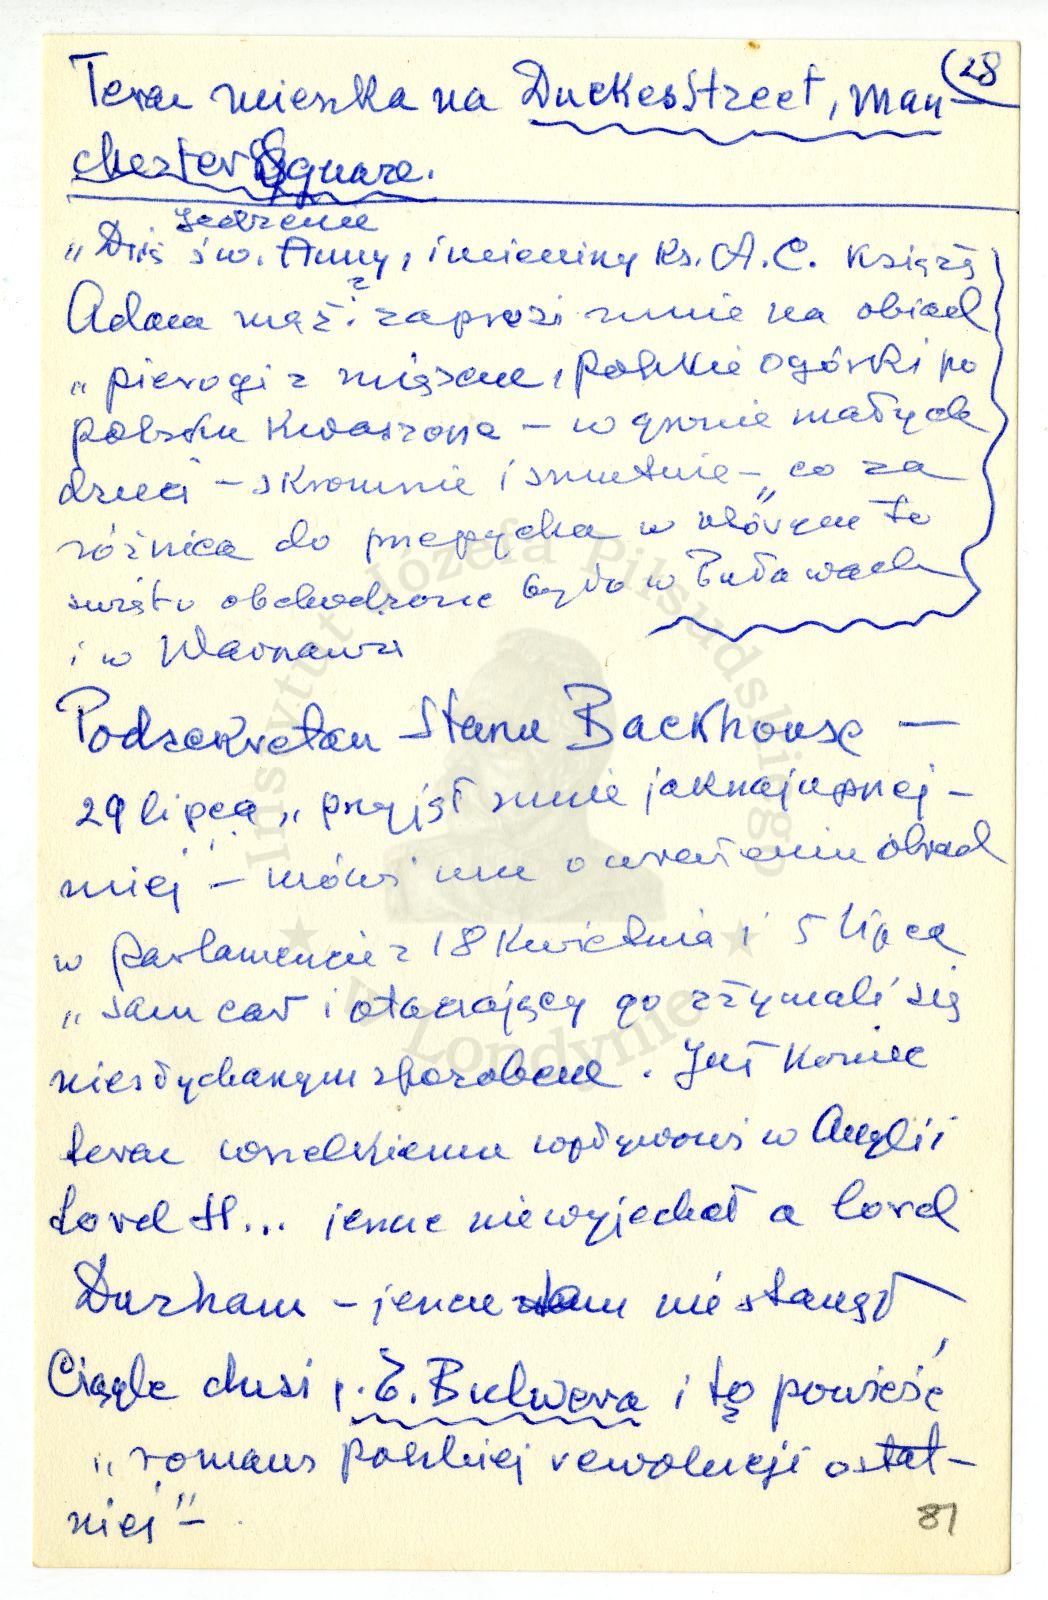 28
Teraz mieszka na DuckesStreet, Man-
chester Square.
jedzenie
„Dziś św. Anny, imieniny Ks. A. C. Książę
Adam zaprosi mnie na obiad
„pierogi z mięsem, polskie ogórki po
polsku kwaszone – w gronie małych
dzieci – skromnie i smutnie – „co za
różnica do przepychu w którym to
święto obchodzone było w Puławach
i w Warszawie
Podsekretarz Stanu Backhouse –
29 lipca „przyjął mnie jaknajuprzej-
miej” – mówi mu o wrażeniu obrad
w parlamencie z 18 Kwietnia i 5 lipca
„sam car i otaczający go zżymali się
niesłychanym sposobem. Już koniec
teraz wszelkiemu wpływowi w Anglii
Lord H... jeszcze nie wyjechał a lord
Durham – jeszcze nie stanął
Ciągle dusi p. E. Bulwera i tę powieść
„romans polskiej rewolucji ostat-
niej” –
81
Instytut Józefa Piłsudskiego
w Londynie